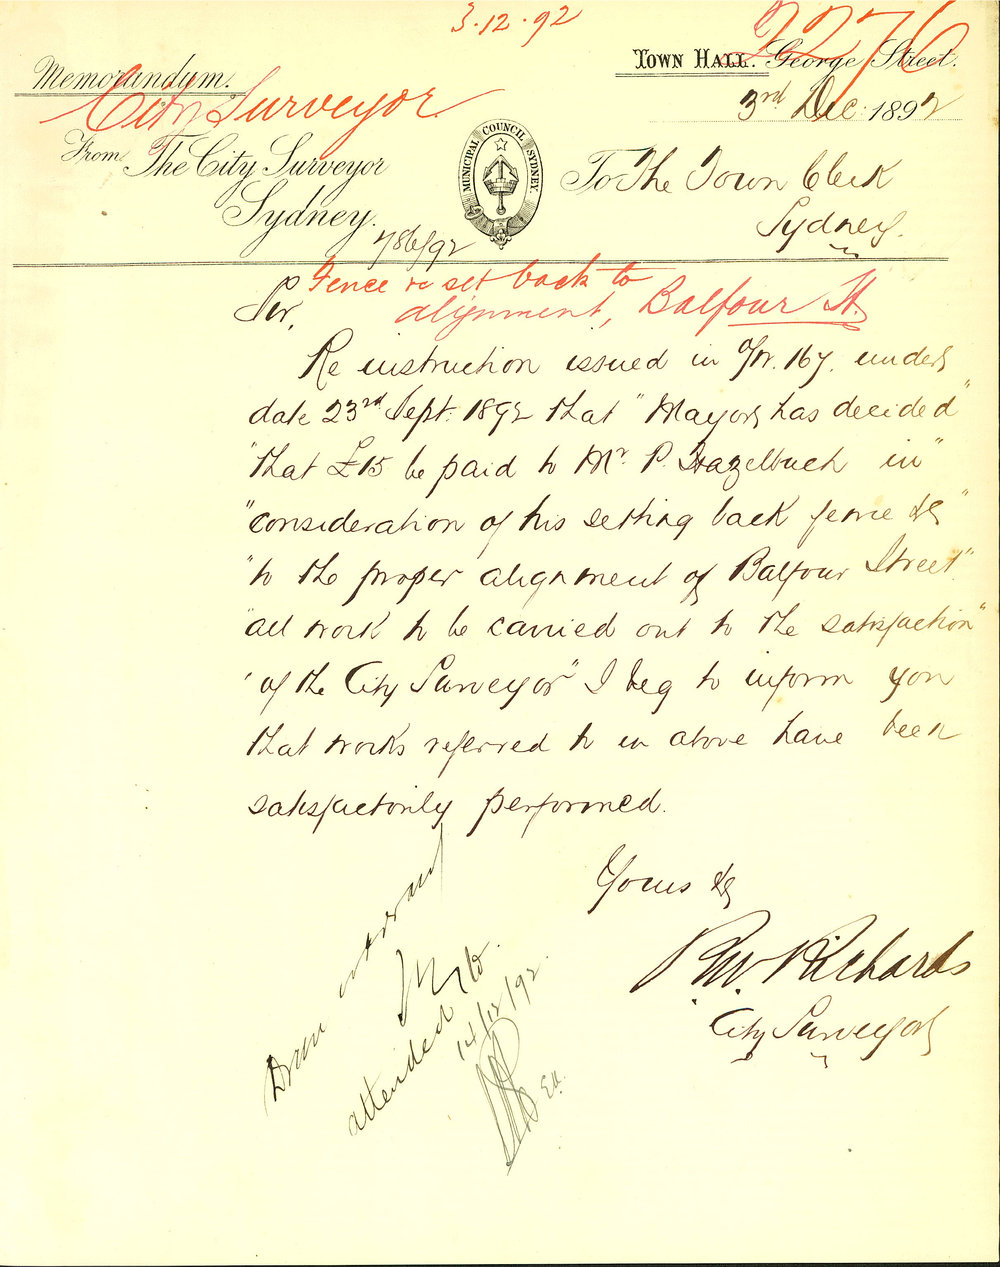 3.12.92
2276
Memorandum.
City Surveyor
TOWN HALL. George Street.
3rd Dec. 1892
From The City Surveyor
Sydney.
MUNICIPAL COUNCIL SYDNEY.
To The Town Clerk
Sydney.
786/92
Fence re set back to
alignment, Balfour St.
Sir,
Re instruction issued in 167. under
date 23rd Sept. 1892 that "Mayor has decided"
"that £15 be paid to Mr. P. Hazelbuch in"
"consideration of his setting back fence &c"
"to the proper alignment of Balfour Street"
"all work to be carried out to the satisfaction"
"of the City Surveyor" I beg to inform you
that works referred to in above have been
satisfactorily performed.
Yours &c
R.W. Richards
City Surveyor
Draw warrant
attended to
14/12/92